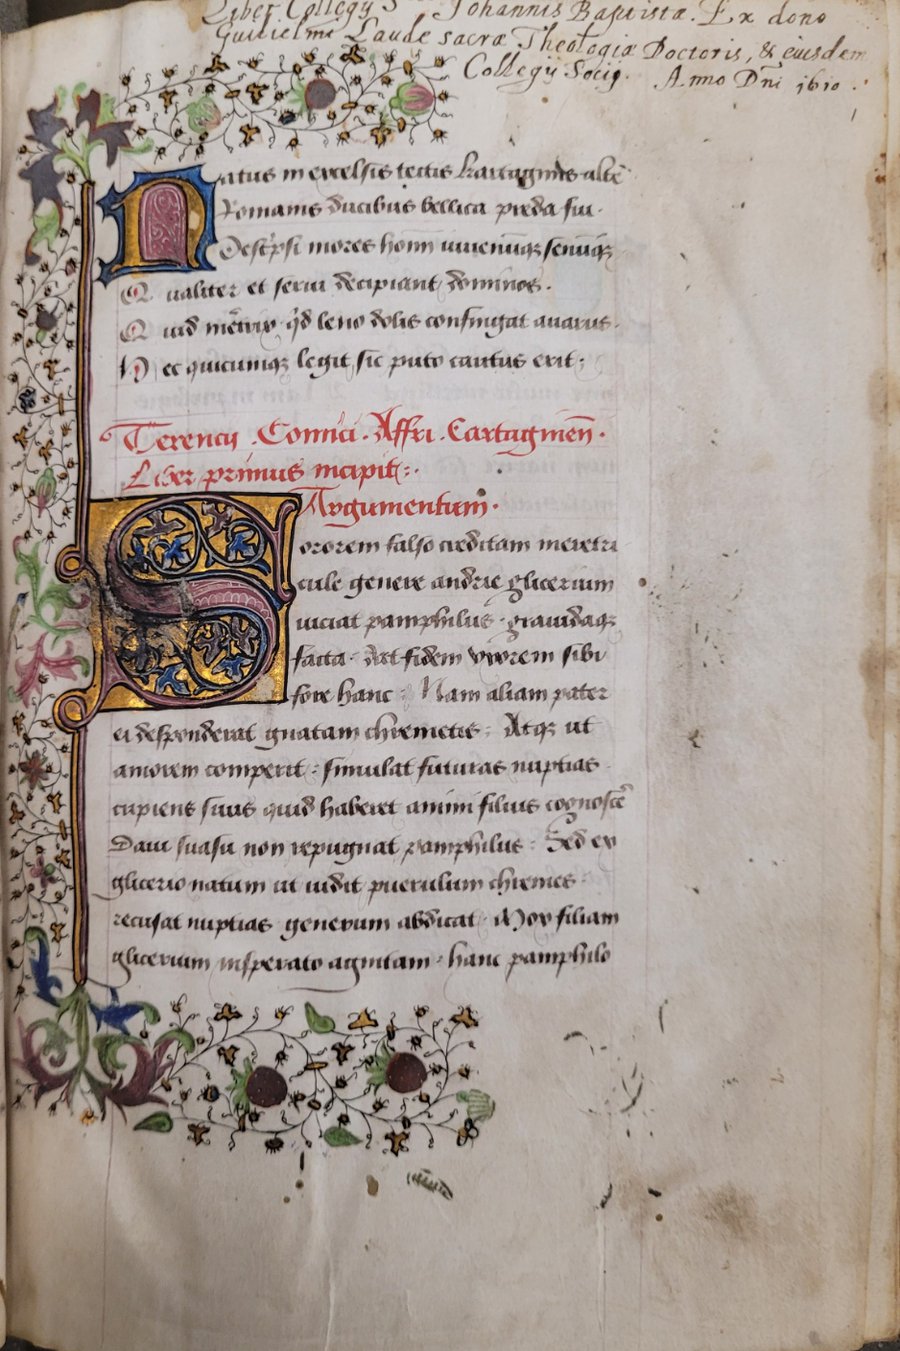 Liber Collegij S Johannis Baptistæ. Ex dono
Guilielmi Laude sacræ Theologiæ Doctoris, & eiusdem
Collegij Socij. Anno Dni 1610.
Natus in excelsis tectis kartaginis alte
Romanis ducibus bellica preda fui.
Descpsi mores homi iuuenuq; senuq;
Qualiter et serui decipiant dominos.
Quid metrix qd leno dolis confingat auarus.
Hec quicunq; legit sic puto cautus erit:
Terencij. Comici. Affri. Cartaginen.
Liber primus incipit:.
Argumentum.
Sororem falso creditam meretri
cule genere andrie glicerium
viciat pamphilus. grauidaq;
facta. dat fidem vxorem sibi
fore hanc: Nam aliam pater
ei desponderat gnatam chremetis: Atq; ut
amorem comperit: simulat futuras nuptias.
cupiens suus quid haberet animi filius cognosce
Daui suasu non repugnat pamphilus: Sed ex
glicerio natum ut uidit puerulum chremes.
recusat nuptias. generum abdicat. Mox filiam
glicerium insperato agnitam. hanc pamphilo